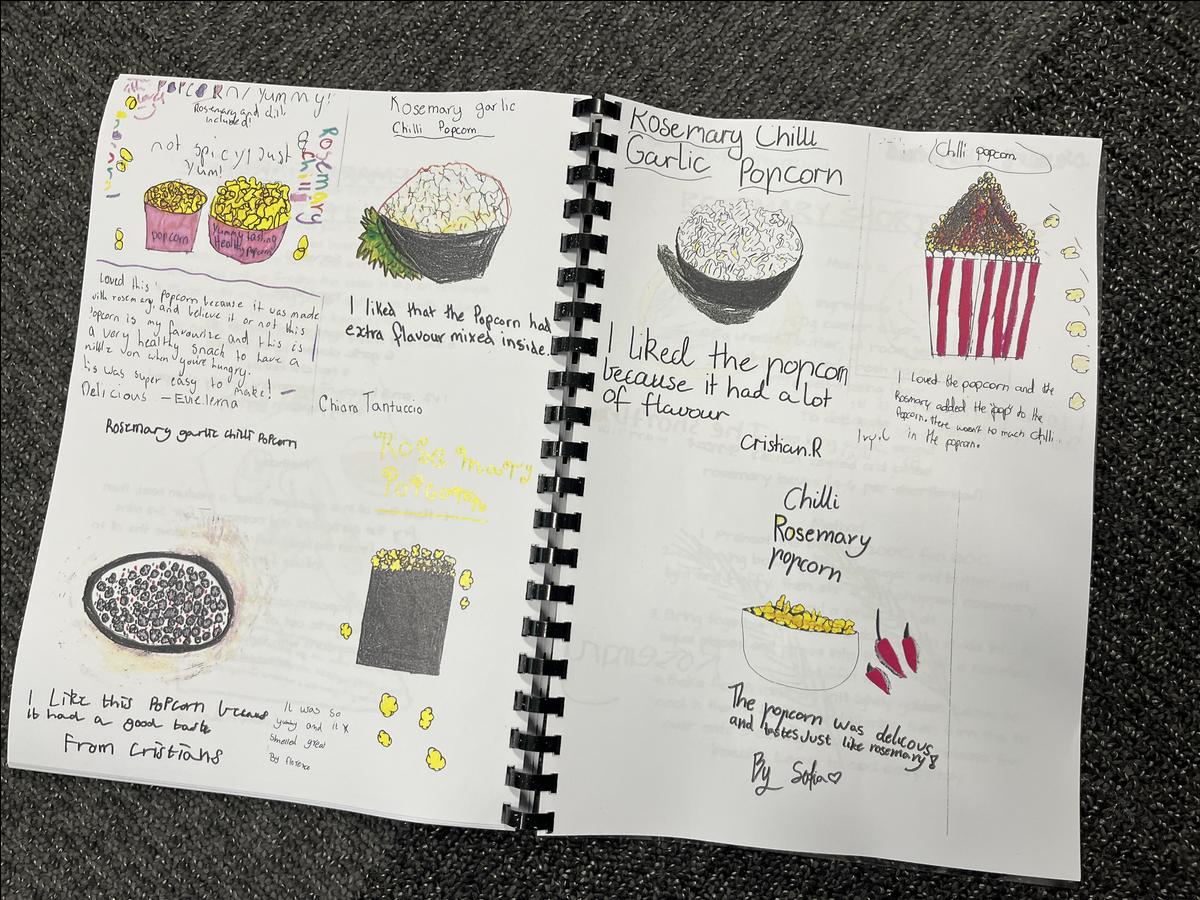 POPCORN/Yummy!
Rosemary and chilli
included!
not spicy! Just
Yum!
Rosemary
& Chilli
popcorn
Yummy tasting
Healthy Popcorn
Loved this Popcorn because it was made
with rosemary, and believe it or not this
Popcorn is my favourite and this is
a very healthy snack to have a
nibble on when you're hungry.
This was super easy to make!
Delicious — Evie.lerna
Rosemary garlic
Chilli Popcorn
I liked that the Popcorn had
extra flavour mixed inside.
Chiara Tantuccio
Rosemary garlic chilli Popcorn
I Like this PoPcorn becaus
it had a good taste
From Cristians
Rose mary
Popcorn
It was so
yummy and it
Smelled great
By florence
Rosemary Chilli
Garlic Popcorn
I liked the popcorn
because it had a lot
of flavour
Cristian.R
Chilli popcorn
I Loved the popcorn and the
Rosmary added the "pop" to the
Popcorn. there wasn't to much chilli
in the popcorn.
Ivy.C
Chilli
Rosemary
popcorn
The popcorn was delicous
and tastes Just like rosemary
By Sofia♡